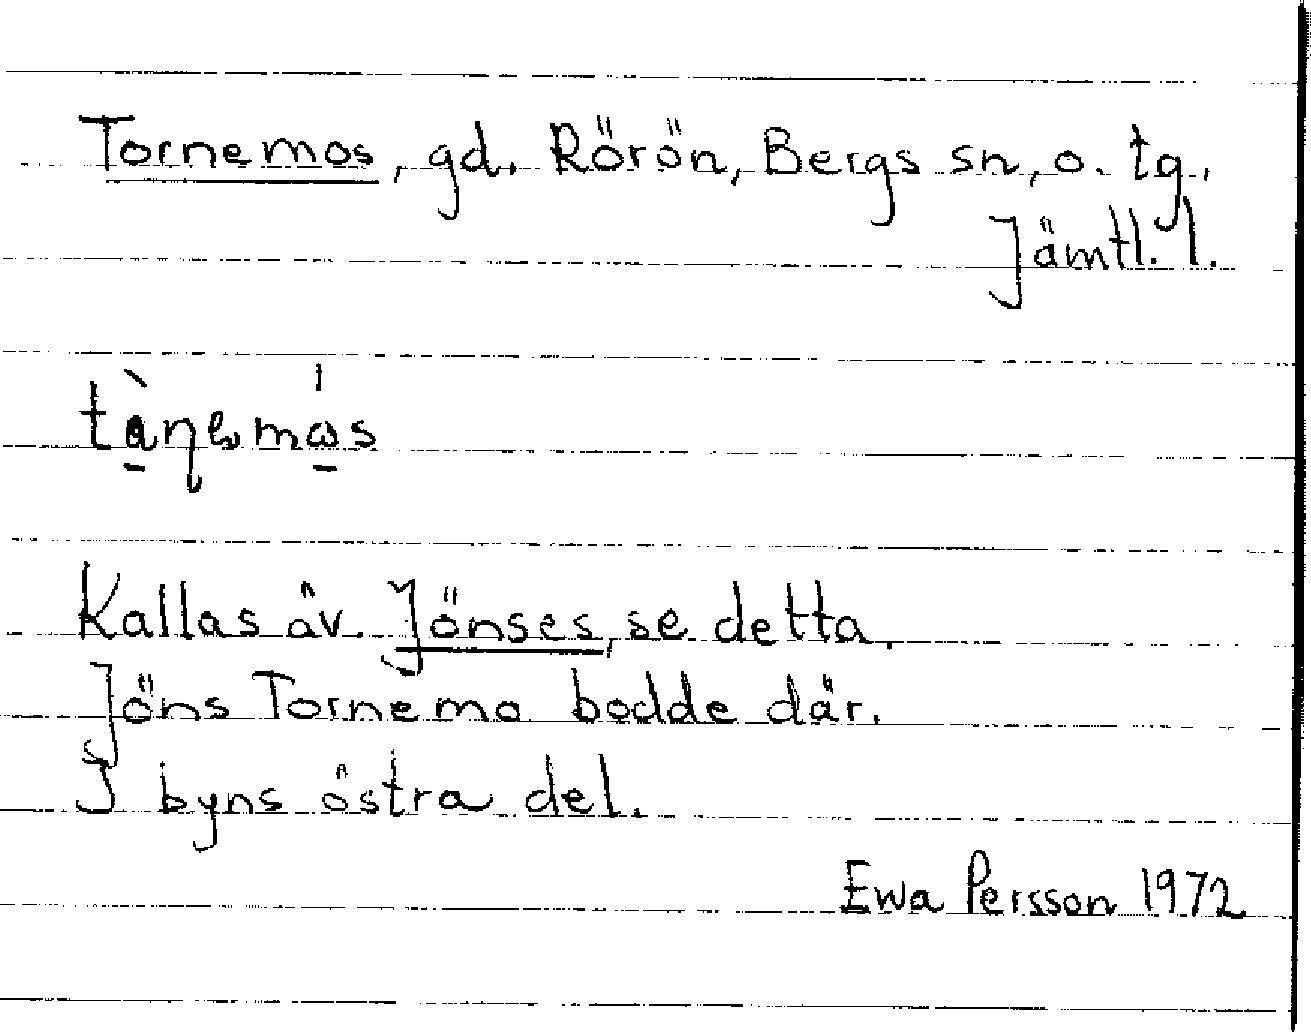 Tornemos, gd. Rörön, Bergs sn, o. tg.,
Jämtl. l.
Kallas äv. Jönses, se detta.
Jöns Tornemo bodde där.
I byns östra del.
Ewa Persson 1972